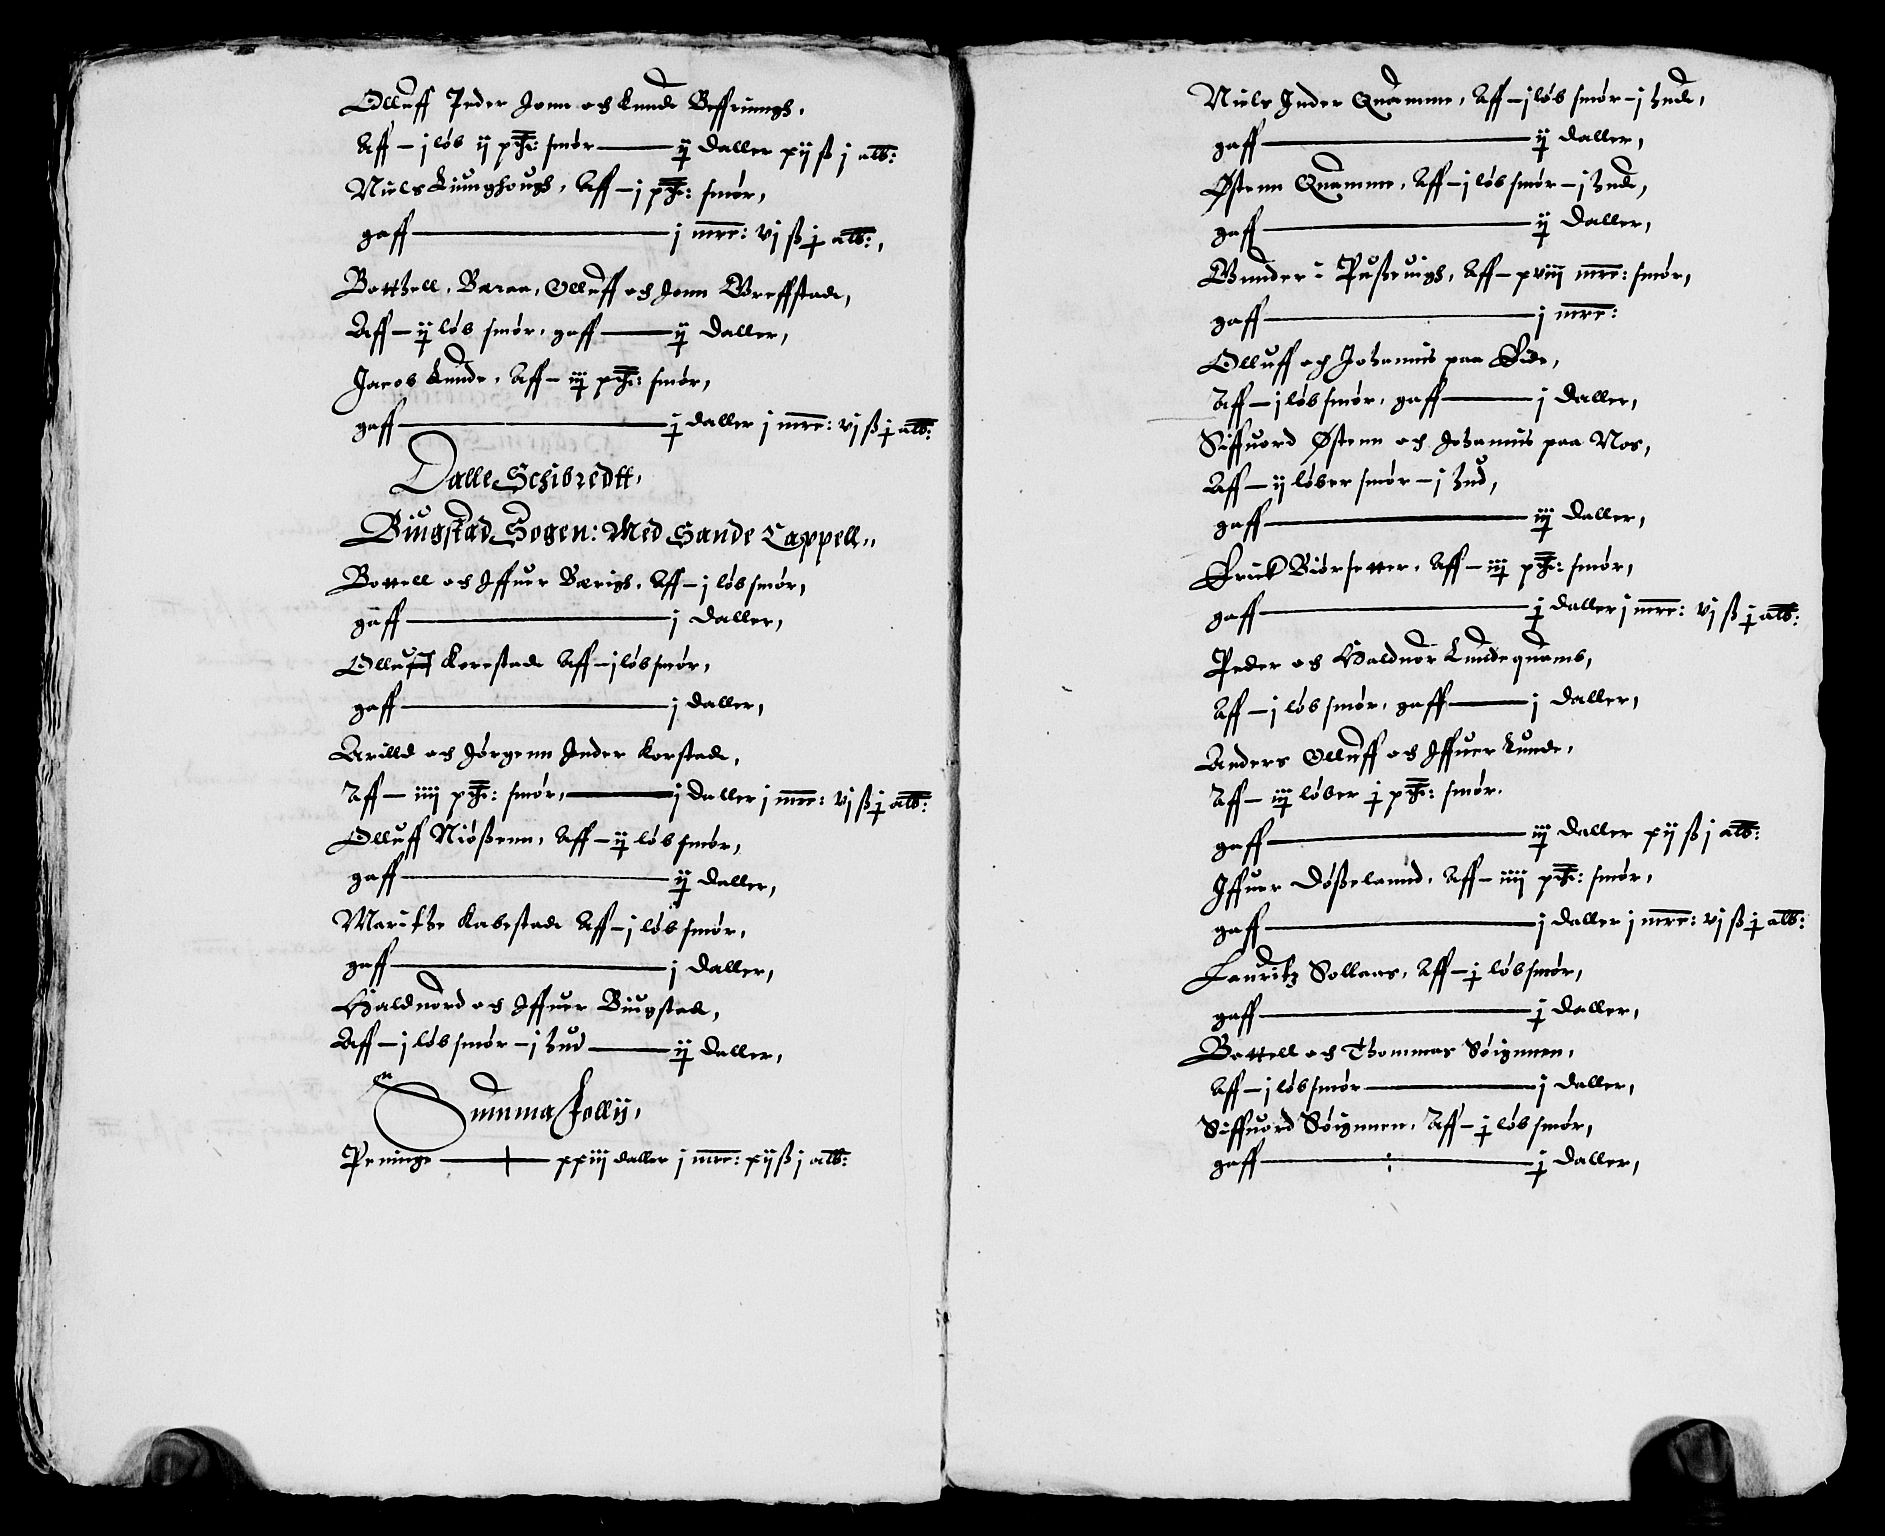 Olluff Peder Jonn och Lunde Beffringh,
Aff – j løb ij pdh: smør —— ij daller xij ß j alb:
Niels Liunghough, Aff – j pdh: smør,
gaff —— j mrc: vj ß j alb:,
Botthell, Baraa, Olluff och Jonn Vreffstade,
Aff – ij løb smør, gaff —— ij daller,
Jacob Lunde, Aff – iij pdh: smør,
gaff —— j daller j mrc: vj ß j alb:
Dalle Schibredtt,
Bingstad Sogen: Med Sande Cappell,,
Bottell och Iffuer Bærigh, Aff – j løb smør,
gaff —— j daller,
Olluff Korstade Aff – j løb smør,
gaff —— j daller,
Arilld och Jørgenn Inder Korstade,
Aff – iiij pdh: smør, —— j daller j mrc: vj ß j alb:
Olluff Niøßenn, Aff – ij løb smør,
gaff —— ij daller,
Maritthe Kabestade Aff – j løb smør,
gaff —— j daller,
Haldnord och Iffuer Bingstade,
Aff – j løb smør – j hud —— ij daller,
Summa Follij,
Peninge —— xxiij daller j mrc: xij ß j alb:
Niels Inder Quamme, Aff – j løb smør – j hude,
gaff —— ij daller,
Østenn Quamme, Aff – j løb smør – j hude,
gaff —— ij daller,
Gunder i Pußeuigh, Aff – xviij mrc: smør,
gaff —— j mrc:
Olluff och Johannis paa Eide,
Aff – j løb smør, gaff —— j daller,
Siffuord Østenn och Johannis paa Nos,
Aff – ij løber smør – j hud,
gaff —— iij daller,
Erick Biørsetter, Aff – iij pdh: smør,
gaff —— j daller j mrc: vj ß j alb:
Peder och Haldnor Lundequamb,
Aff – j løb smør, gaff —— j daller,
Anders Olluff och Iffuer Lunde,
Aff – iij løber j pdh: smør.
gaff —— iij daller xij ß j alb:
Iffuer Døßelannd, Aff – iiij pdh: smør,
gaff —— j daller j mrc: vj ß j alb:
Lauritz Sollaas, Aff – j løb smør,
gaff —— j daller,
Bottell och Thommas Søignnen,
Aff – j løb smør —— j daller,
Siffuord Søignnen, Aff – j løb smør,
gaff —— j daller,